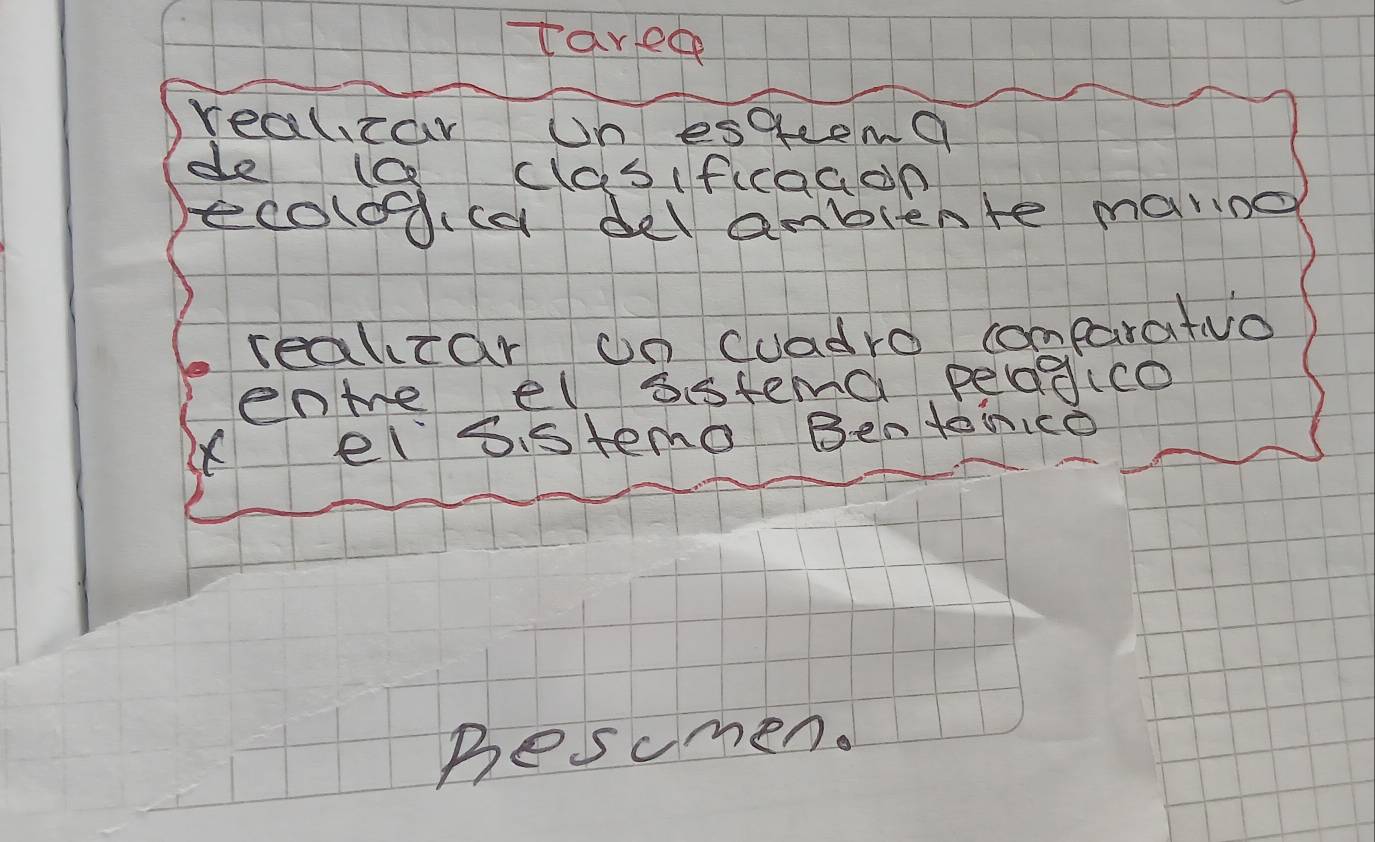 Tarea
realizar un esquema
de la clasificación
ecológica del ambiente marino
realizar un cuadro comparativo
entre el sistema pelagico
y el sistema Bentónico
Resumen.